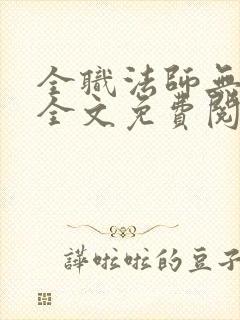 全職法師無
全文免費閱
譁啦啦的豆子